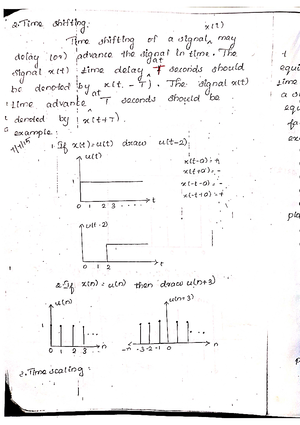 2. Time shifting:
x(t)
Time shifting of a signal, may
delay (or) advance the signal in time. The
signal x(t) time delay at T seconds should
be denoted by x(t - T). The signal x(t)
time advance at T seconds should be
denoted by x(t+T).
example:
1. If x(t)=u(t) draw u(t-2)
u(t)
1
0 1 2 3 .... t
x(t-a)=
x(t+a)=
x(-t-a)=
x(-t+a)=
u(t-2)
0 1 2 t
2. If x(n) = u(n) then draw u(n+3)
u(n)
1
0 1 2 3 ... n
u(n+3)
-n -3 -2 -1 0 n
2. Time scaling: